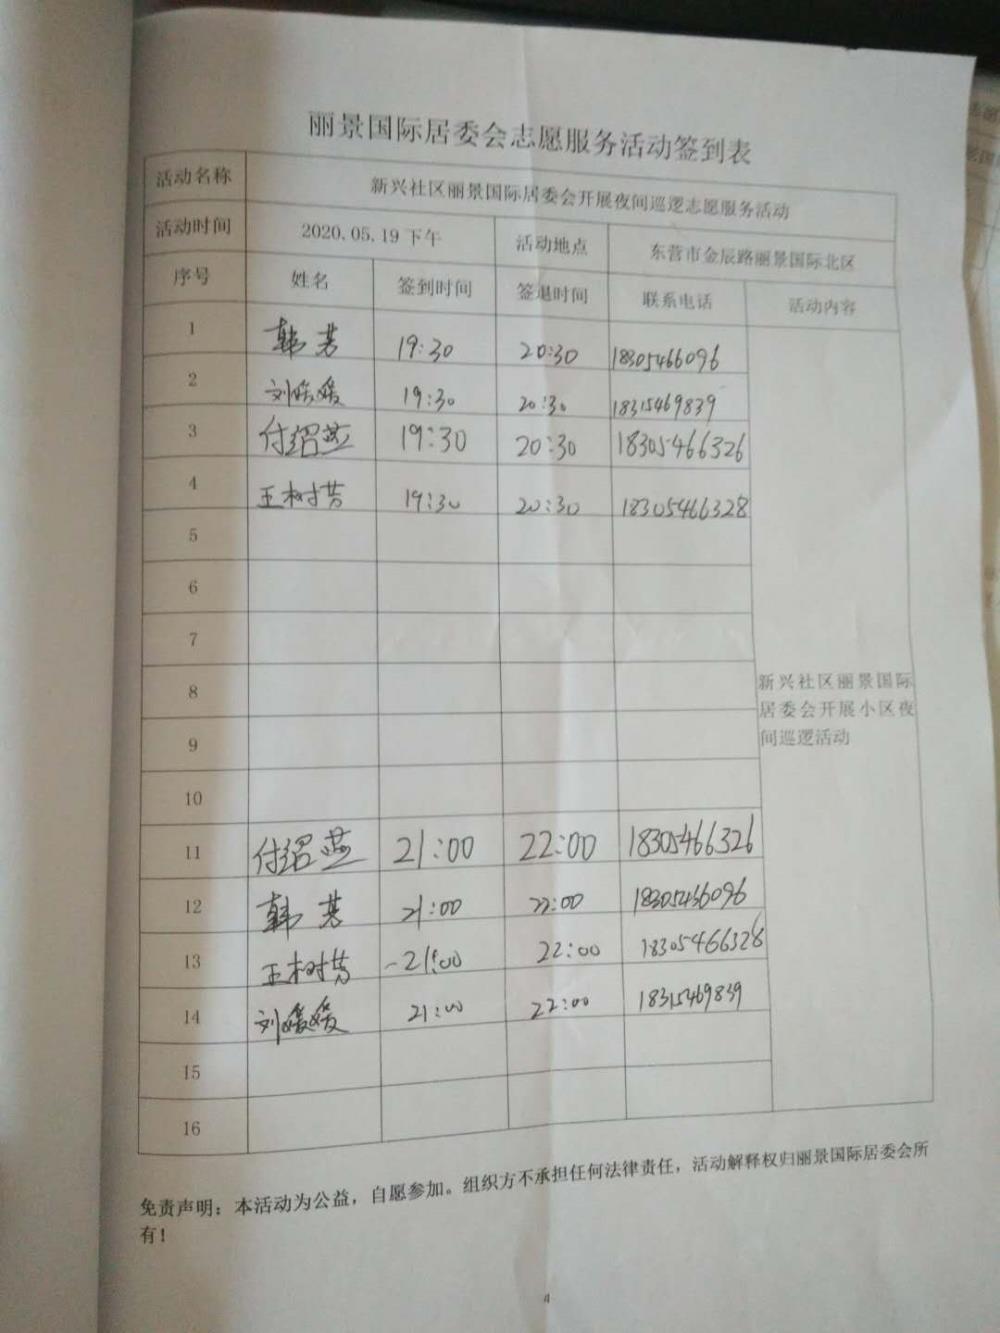 丽景国际居委会志愿服务活动签到表
活动名称 新兴社区丽景国际居委会开展夜间巡逻志愿服务活动
活动时间 2020.05.19下午 活动地点 东营市金辰路丽景国际北区
序号 姓名 签到时间 签退时间 联系电话 活动内容
1 韩芳 19:30 20:30 18305466096
2 刘媛媛 19:30 20:30 18315469839
3 付绍燕 19:30 20:30 18305466326
4 王树芳 19:30 20:30 18305466328
5
6
7
8
9
10
新兴社区丽景国际
居委会开展小区夜
间巡逻活动
11 付绍燕 21:00 22:00 18305466326
12 韩芳 21:00 22:00 18305466096
13 王树芳 21:00 22:00 18305466328
14 刘媛媛 21:00 22:00 18315469839
15
16
免责声明：本活动为公益，自愿参加。组织方不承担任何法律责任，活动解释权归丽景国际居委会所
有！
4